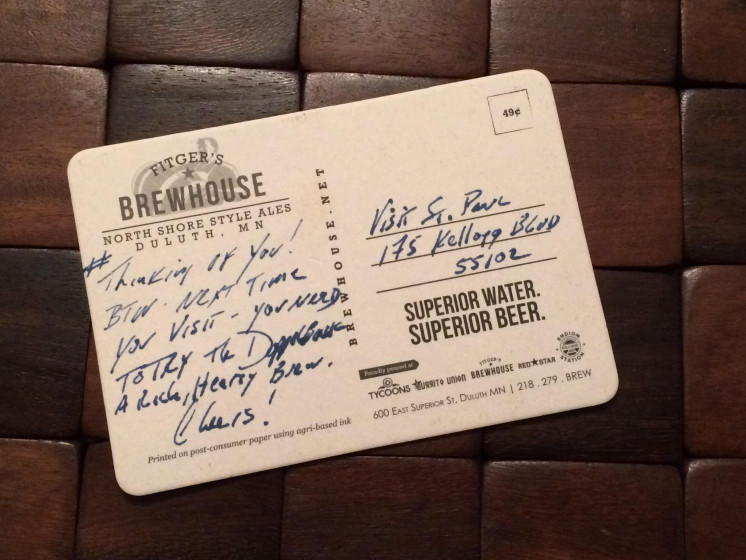 FITGER'S
BREWHOUSE
NORTH SHORE STYLE ALES
DULUTH, MN
# Thinking of You!
BTW. NEXT TIME
YOU VISIT - YOU NEED
TO TRY THE DOPPELBOCK
A Rich, Hearty Brew.
Cheers!
Printed on post-consumer paper using agri-based ink
BREWHOUSE.NET
49¢
Visit St. Paul
175 Kellogg BLVD
55102
SUPERIOR WATER.
SUPERIOR BEER.
Proudly poured at
TYCOONS
BURRITO UNION
FITGER'S
BREWHOUSE
RED STAR
ENDION
STATION
600 EAST SUPERIOR ST, DULUTH MN | 218 . 279 . BREW